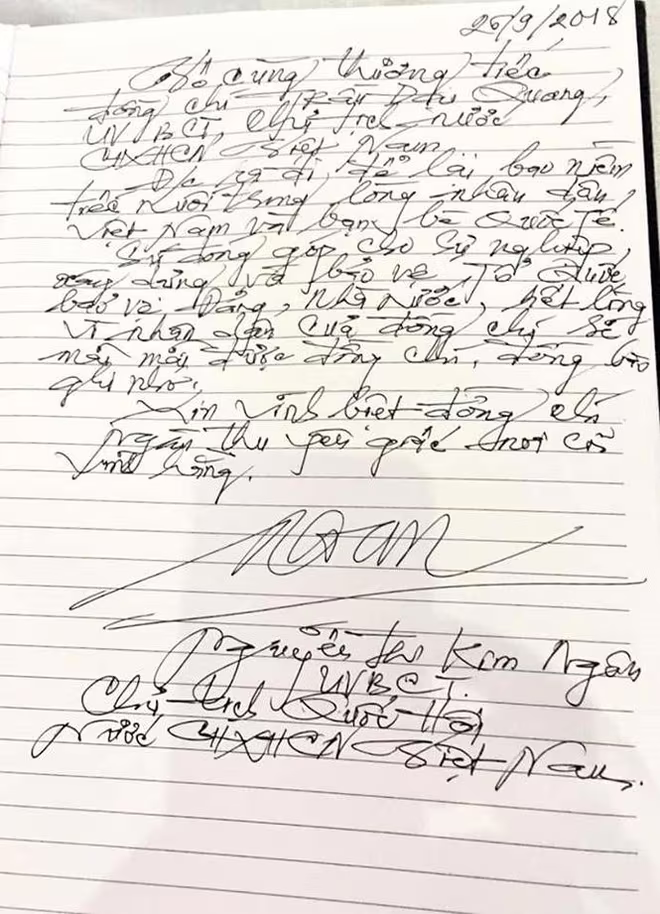 26/9/2018
Vô cùng thương tiếc
đồng chí Trần Đại Quang,
UV BCT, Chủ tịch nước
CHXHCN Việt Nam.
Đ/c ra đi, để lại bao niềm
tiếc nuối trong lòng nhân dân
Việt Nam và bạn bè Quốc Tế.
Sự đóng góp cho sự nghiệp,
xây dựng và bảo vệ Tổ Quốc,
bảo vệ Đảng, Nhà nước, hết lòng
vì nhân dân của đồng chí sẽ
mãi mãi được đồng chí, đồng bào
ghi nhớ.
Xin vĩnh biệt đồng chí
ngàn thu yên giấc nơi cõi
vĩnh hằng.
Ngân
Nguyễn Thị Kim Ngân
UVBCT.
Chủ tịch Quốc Hội
Nước CHXHCN Việt Nam.